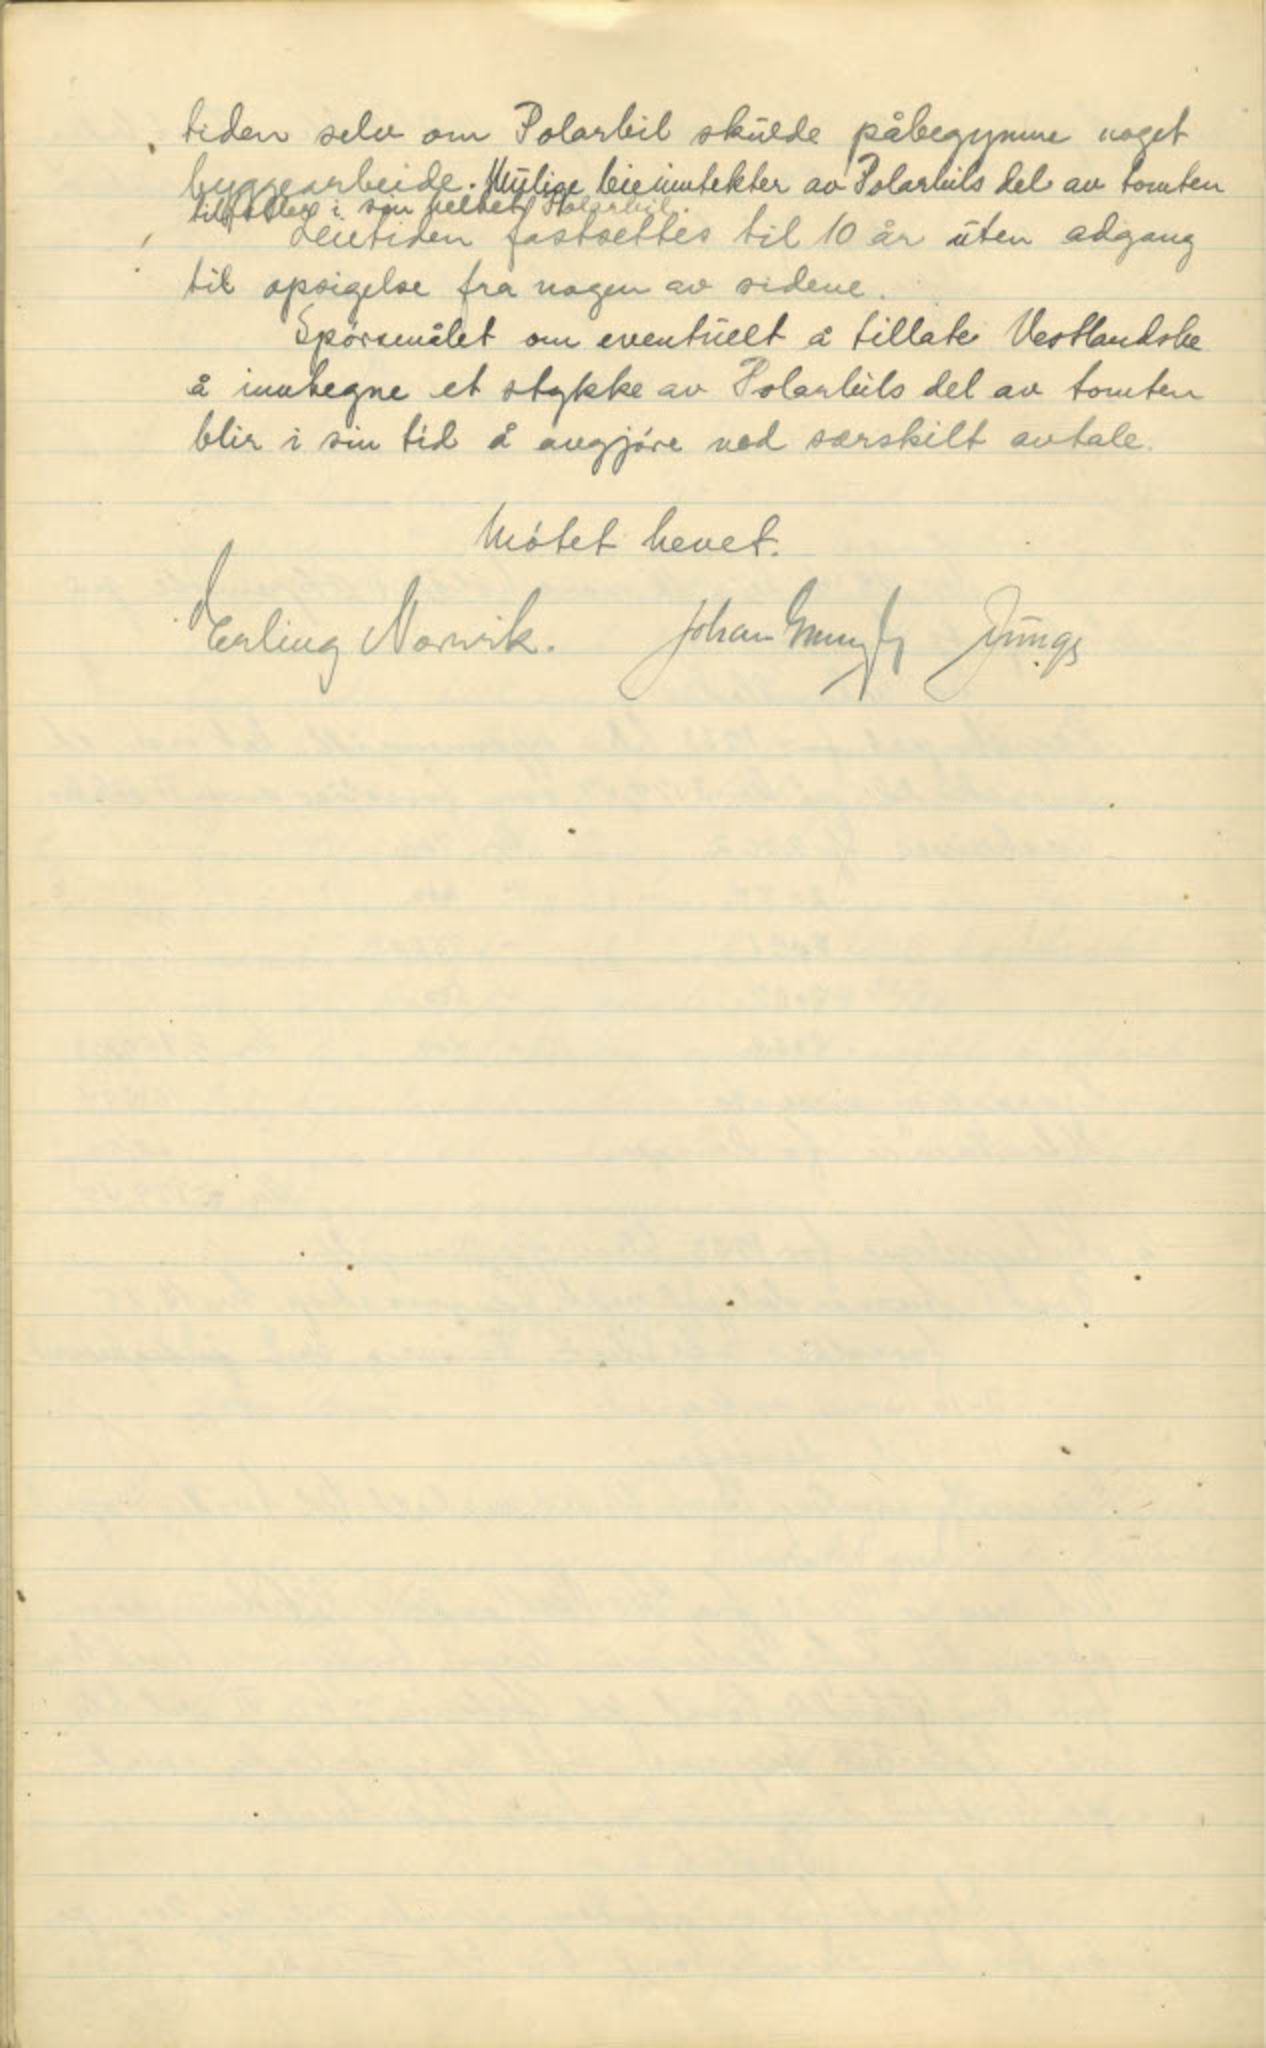 tiden selv om Polarbil skulde påbegynne noget
byggearbeide. Mulige leieinntekter av Polarbils del av tomten
tilfaller i sin helhet Polarbil.
Leietiden fastsettes til 10 år uten adgang
til opsigelse fra nogen av sidene.
Spørsmålet om eventuelt å tillate Vestlandske
å innhegne et stykke av Polarbils del av tomten
blir i sin tid å avgjøre ved særskilt avtale.
Møtet hevet.
Erling Norvik. Johan